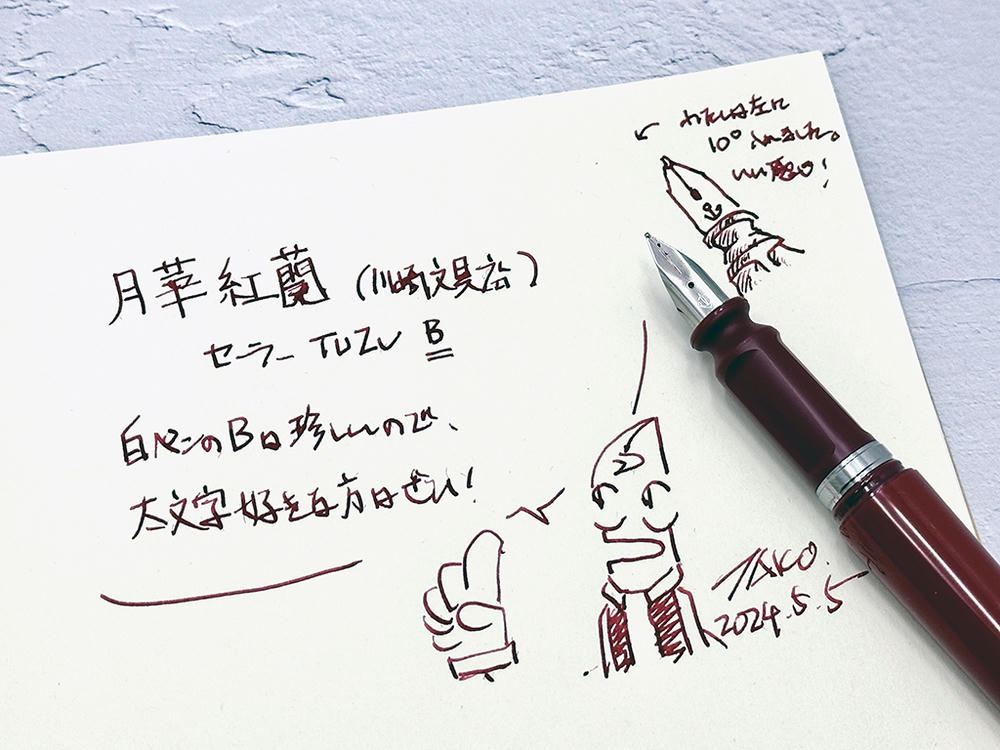 わたしは左に
10° 入れました。
いい感じ!
月華紅蘭 (川崎文具店)
セーラー TUZU B
白ペンのBは珍しいので、
太文字好きな方はぜひ!
TAKO.
2024.5.5